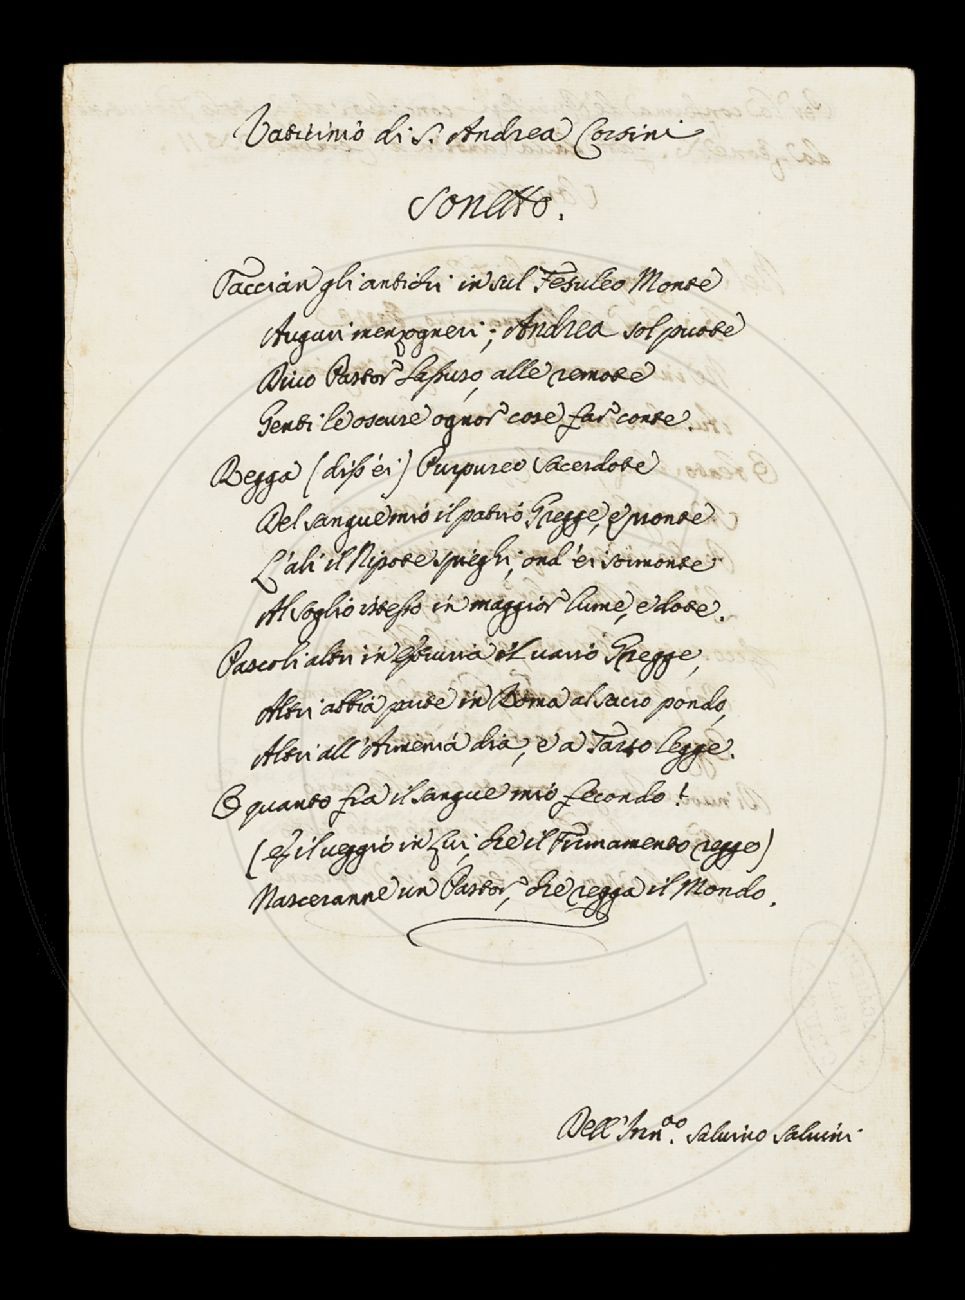 Vaticinio di S. Andrea Corsini
Sonetto.
Taccian gli antichi in sul Fesuleo Monte
Auguri menzogneri; Andrea sol puote
Divo Pastor lassuso, alle remote
Genti le oscure ognor cose far conte.
Regga (diss'ei) Purpureo Sacerdote
Del sangue mio il patrio Gregge, e pronte
L'ali il Nipote spieghi; ond'ei sormonte
Al soglio istesso in maggior lume, e dote.
Pascoli altri in Etruria il vario Gregge,
Altri abbia pure in Roma al sacro pondo,
Altri all'Armenia dia, e a Tarso legge.
O quanto fia il sangue mio fecondo!
(e il veggio in Lui, che il Firmamento regge)
Nasceranne un Pastor, che regga il Mondo.
Dell' Salvino Salvini